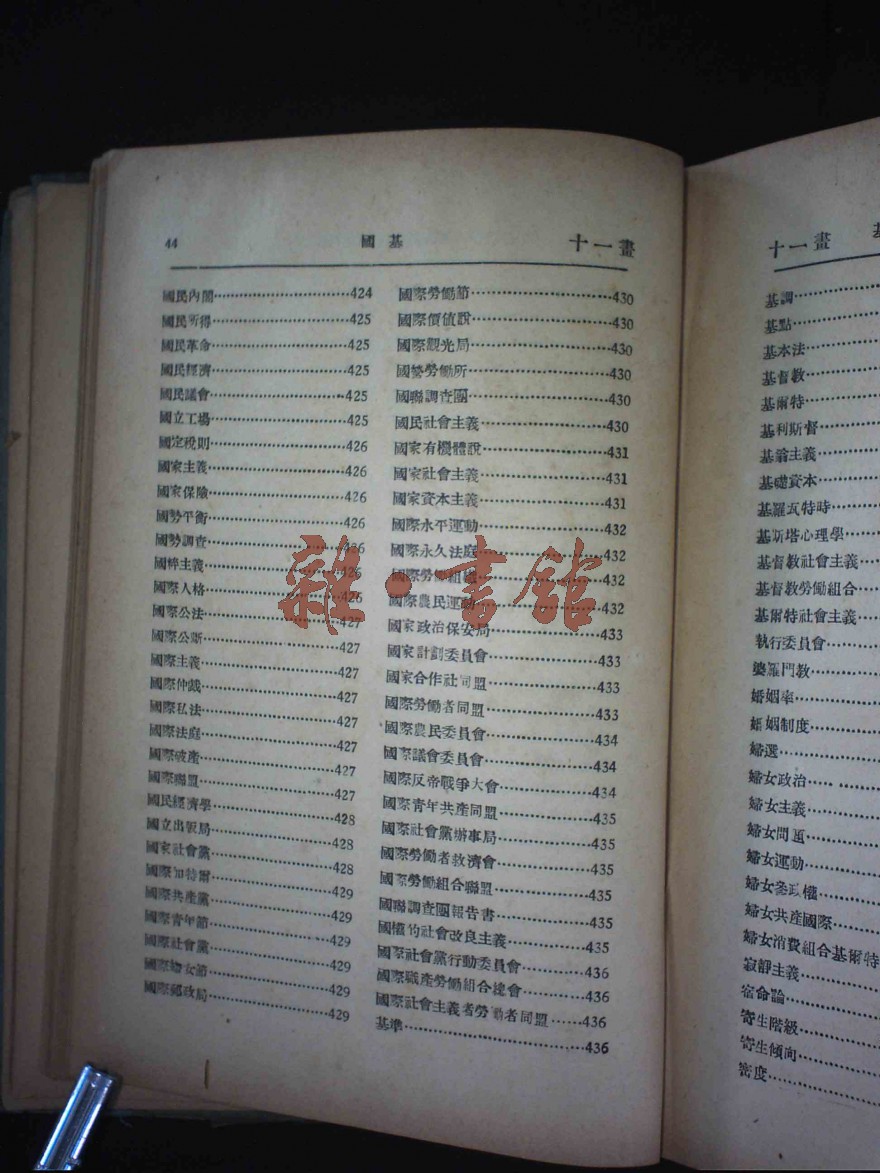 44 國基 十一畫
國民內閣……424
國民所得……425
國民革命……425
國民經濟……425
國民議會……425
國立工場……425
國定稅則……426
國家主義……426
國家保險……426
國勢平衡……426
國勢調查……426
國粹主義……426
國際人格……426
國際公法……427
國際公斷……427
國際主義……427
國際仲裁……427
國際私法……427
國際法庭……427
國際破產……427
國際聯盟……427
國民經濟學……428
國立出版局……428
國家社會黨……428
國際加特爾……429
國際共產黨……429
國際青年節……429
國際社會黨……429
國際婦女節……429
國際郵政局……429
國際勞働節……430
國際價值說……430
國際觀光局……430
國營勞働所……430
國聯調查團……430
國民社會主義……430
國家有機體說……431
國家社會主義……431
國家資本主義……431
國際水平運動……432
國際永久法庭……432
國際勞働組織……432
國際農民運動……432
國家政治保安局……433
國家計劃委員會……433
國家合作社同盟……433
國際勞働者同盟……433
國際農民委員會……434
國際議會委員會……434
國際反帝戰爭大會……434
國際青年共產同盟……435
國際社會黨辦事局……435
國際勞働者救濟會……435
國際勞働組合聯盟……435
國聯調查團報告書……435
國權的社會改良主義……435
國際社會黨行動委員會……436
國際職產勞働組合總會……436
國際社會主義者勞働者同盟……436
基準……436
雜·書館
十一畫 基
基調……
基點……
基本法……
基督教……
基爾特……
基利斯督……
基翁主義……
基礎資本……
基羅瓦特時……
基斯塔心理學……
基督教社會主義……
基督教勞働組合……
基爾特社會主義……
執行委員會……
婆羅門教……
婚姻率……
婚姻制度……
婦選……
婦女政治……
婦女主義……
婦女問題……
婦女運動……
婦女參政權……
婦女共產國際……
婦女消費組合基爾特
寂靜主義……
宿命論……
寄生階級……
寄生傾向……
密度……